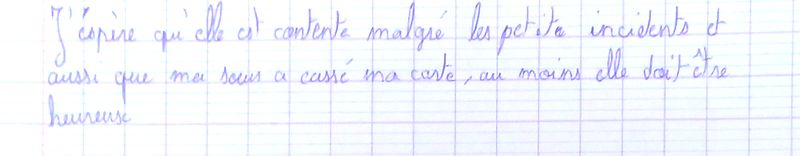 J'éspère qu'elle est contente malgré les petits incidents et
aussi que ma sœur a cassé ma carte, au moins elle doit être
heureuse